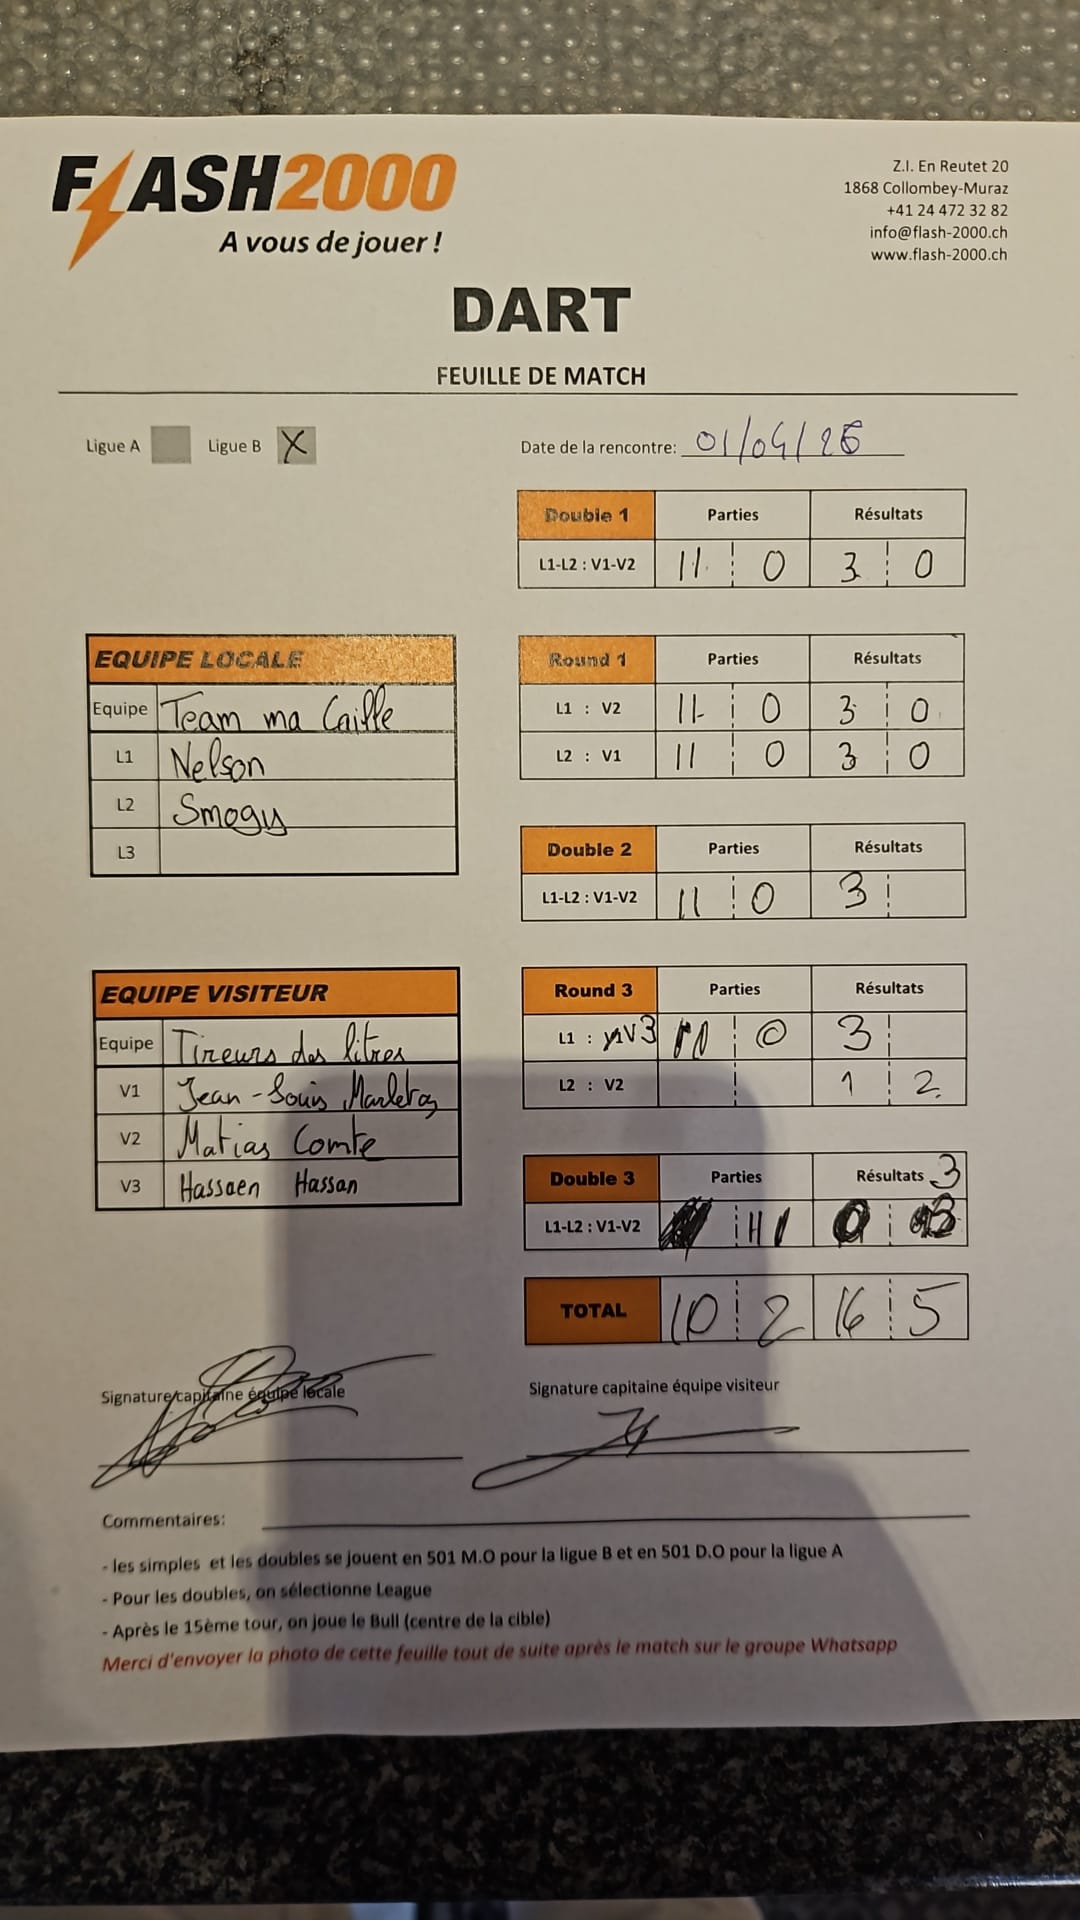 FLASH2000
A vous de jouer !
Z.I. En Reutet 20
1868 Collombey-Muraz
+41 24 472 32 82
info@flash-2000.ch
www.flash-2000.ch
DART
FEUILLE DE MATCH
Ligue A Ligue B X
Date de la rencontre: 01/04/26
Double 1 Parties Résultats
L1-L2 : V1-V2 11 0 3 0
EQUIPE LOCALE
Equipe Team ma Caille
L1 Nelson
L2 Smogy
L3
Round 1 Parties Résultats
L1 : V2 11 0 3 0
L2 : V1 11 0 3 0
Double 2 Parties Résultats
L1-L2 : V1-V2 11 0 3
EQUIPE VISITEUR
Equipe Tireurs des litres
V1 Jean-Louis
V2 Matias Comte
V3 Hassaen Hassan
Round 3 Parties Résultats
L1 : V3 0 3
L2 : V2 1 2
Double 3 Parties Résultats 3
L1-L2 : V1-V2 0 3
TOTAL 10 2 16 5
Signature capitaine équipe locale
Signature capitaine équipe visiteur
Commentaires:
- les simples et les doubles se jouent en 501 M.O pour la ligue B et en 501 D.O pour la ligue A
- Pour les doubles, on sélectionne League
- Après le 15ème tour, on joue le Bull (centre de la cible)
Merci d'envoyer la photo de cette feuille tout de suite après le match sur le groupe Whatsapp